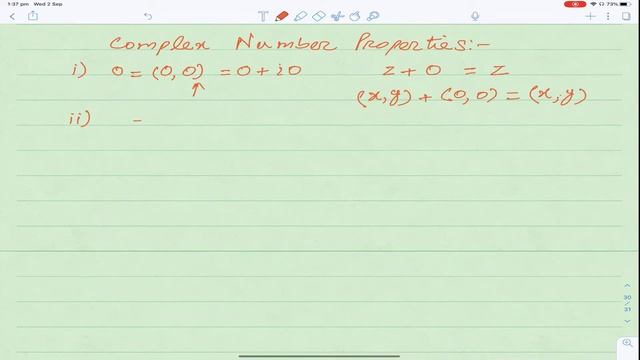 1:37 pm Wed 2 Sep 73%
Complex Number Properties:-
i) 0 = (0,0) = 0 + i0 z + 0 = z
(x,y) + (0,0) = (x,y)
ii) -
30
31